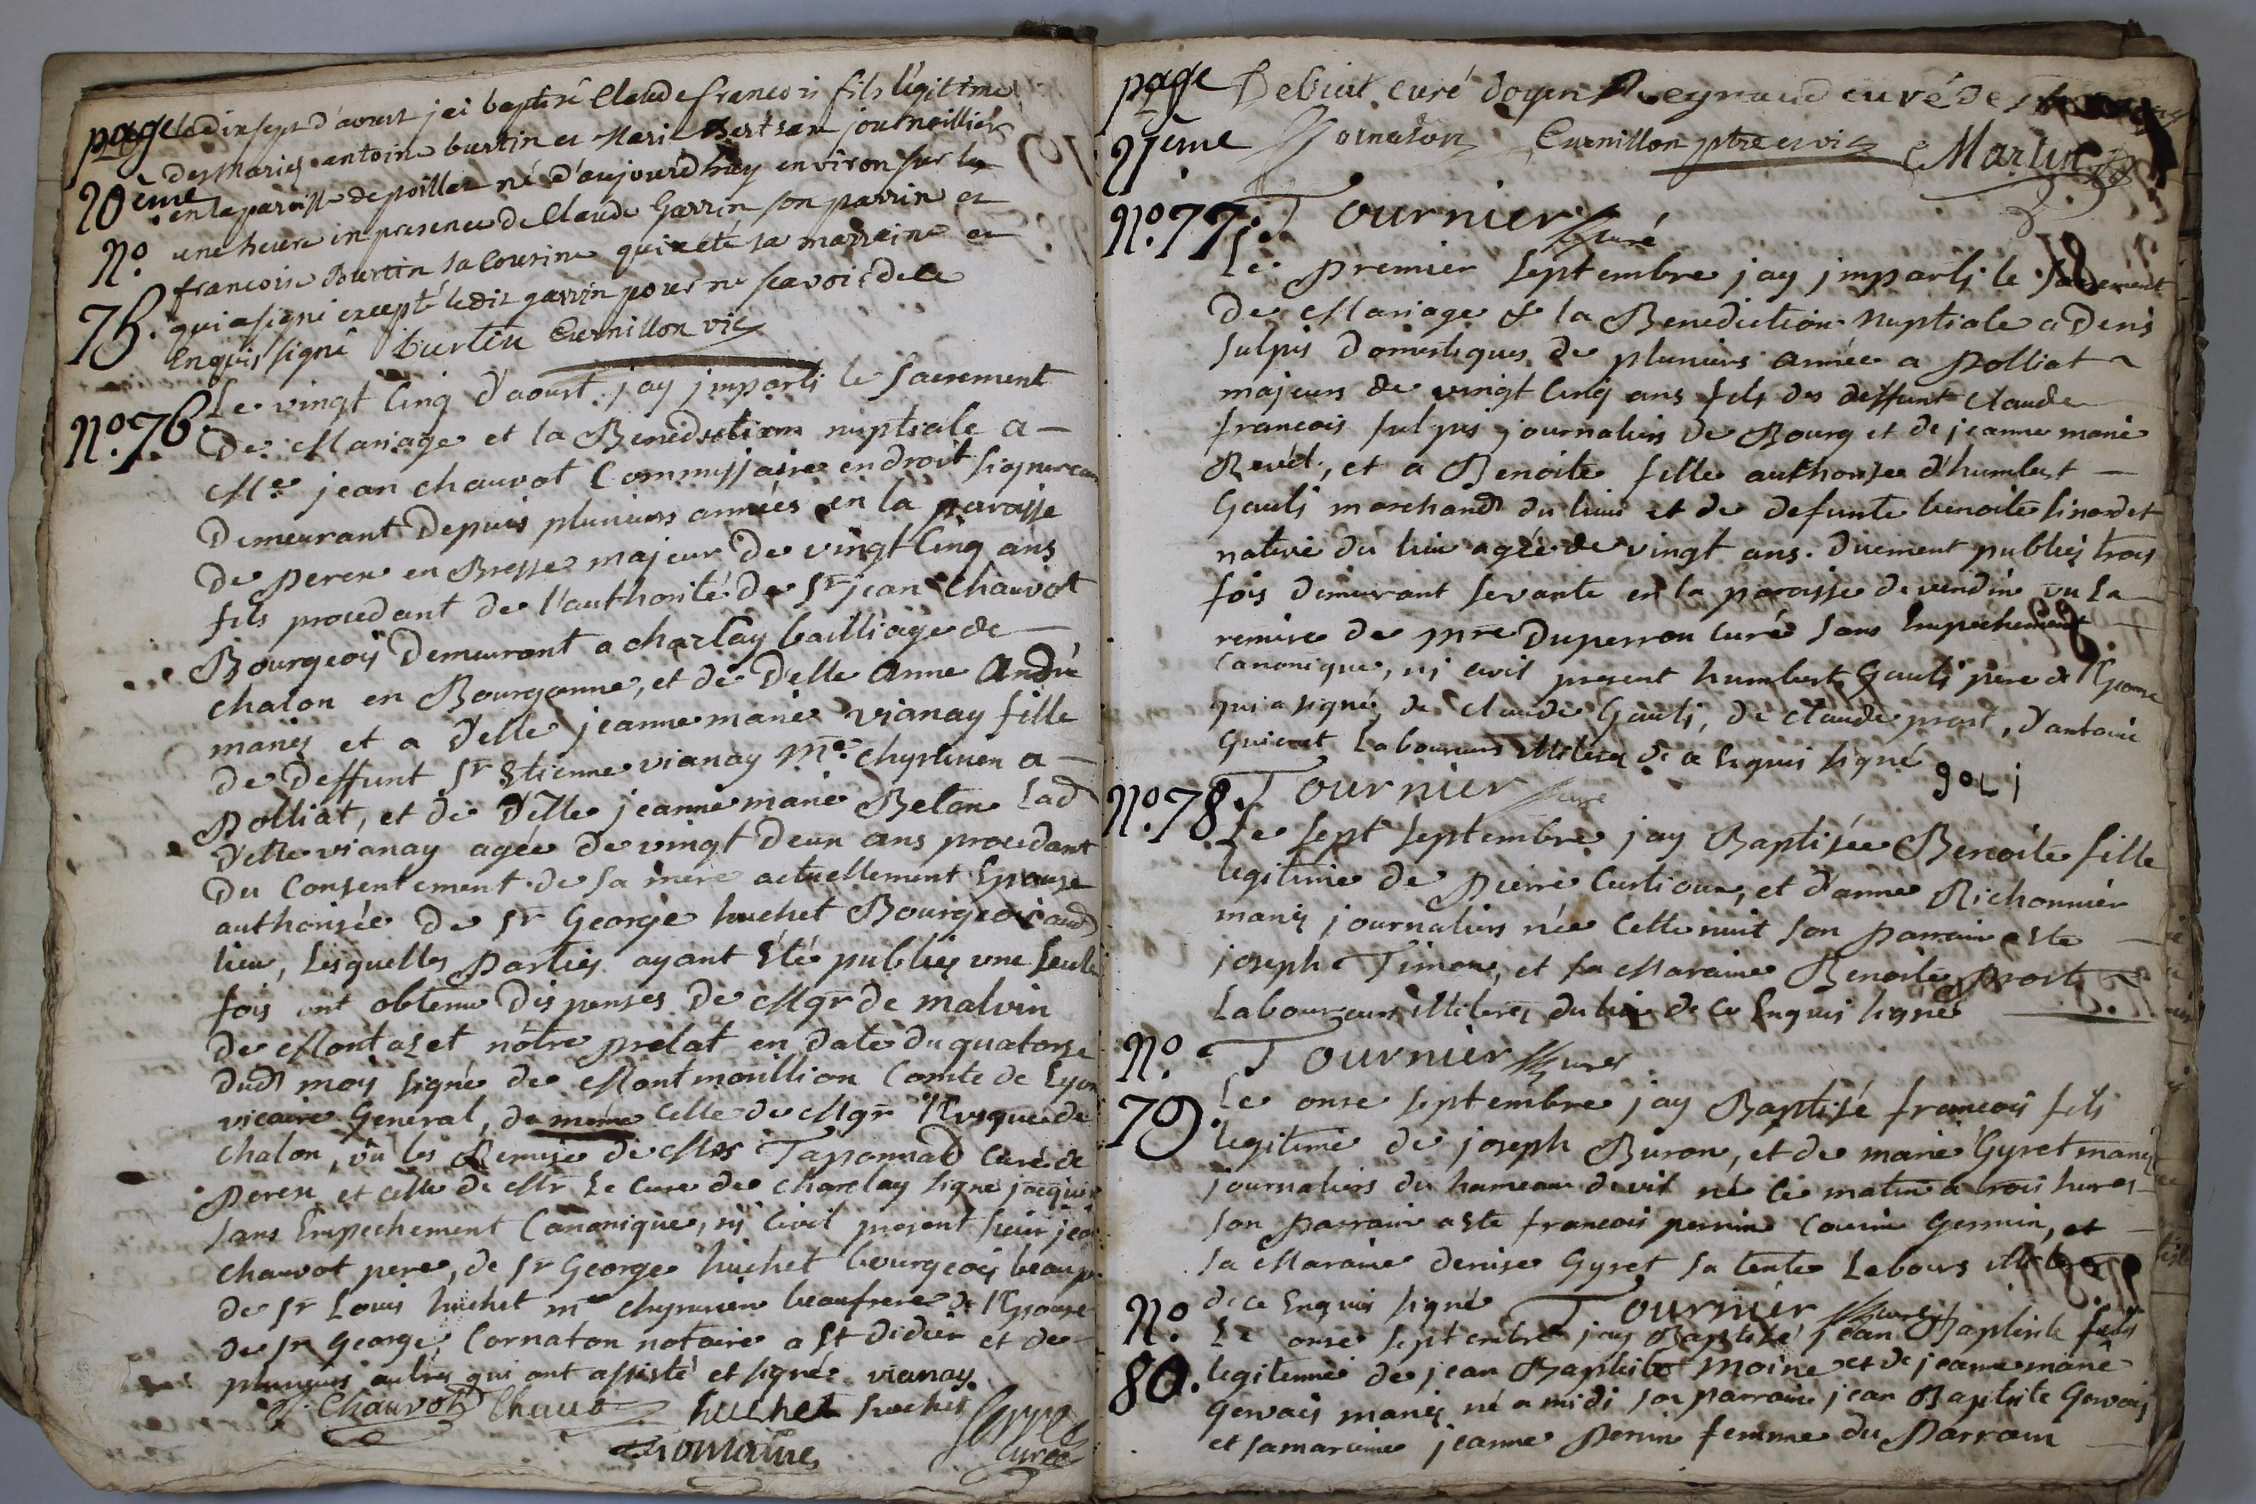 page
20ème
led dixsept d'aoust jai baptisé Claude francois fils légitime
des Mariés antoine burtin et Marie Bertran journaillier
en la paroisse de poillat né d'aujourd'huy environ sur les
No
une heure in presence de Claude Garrin son parrin et
francoise Burtin sa cousine qui a eté sa marraine et
75.
qui a signé excepté ledit garrin pour ne scavoir de ce
Enquis signé burtin Curnillon vic
No. 76.
Le vingt Cinq d'aoust jay imparti le Sacrement
De Mariage et la Benediction nuptiale a
Me jean chauvot Commissaire en droit
Demeurant Depuis plusieurs années en la paroisse
De perex en Bresse majeur de vingt Cinq ans
fils procedant de l'authorité de Sr jean chauvot
Bourgeois Demeurant a charlay bailliage de
chalon en Bourgonne, et de Delle Anne André
mariés et a Delle jeanne marie vianay fille
de deffunt Sr Etienne vianay Me a
Polliat, et de Delle jeanne marie Belon Lad
Delle vianay agée de vingt deux ans procedant
Du Consentement de sa mere actuellement Epouse
authorisée de Sr George huchet Bourgeois aud
lieu, Lesquelles Parties ayant été publiés une seule
fois ont obtenu Dispenses de Mgr de malvin
de Montazet nôtre prelat en date du quatorze
dud moy signé de Montmorillion Comte de Lyon
vicaire General, de même Celle de Mgr l'Evesque de
chalon, vû les Remise de Mrs Taponnad Curé de
perex et celle de Mr Le Cure de Charelay signé
sans Empechement Canonique, nj Civil present sieur jean
chauvot pere, de Sr George huchet bourgeois
de Sr Louis huchet beaufrere de l'Epouse
de Sr George Cornaton notaire a St Didier et de
plusieurs autres qui ont assisté et signés vianay
Chauvot Chauvot huchet huchet
curé
page
21ème
Debiut curé doyen Reynaud curé de
Cornaton Curnillon ptre et vic Martin
No. 77.
Tournier Curé
Le premier Septembre jay imparti le Sacrement
De Mariage & la Benediction nuptiale a Denis
Sulpis Domestiques de plusieurs année a Polliat
majeurs de vingt Cinq ans fils des deffunt Claude
francois Sulpis journaliers de Bourg et de jeanne marie
Revel, et a Benoite fille authorisée d'humbert
Gauli marchand du lieu et de defunte benoite
native du lieu agée de vingt ans. Duement publiés trois
fois demeurant servante en la paroisse de vendin vu la
remise de Duperron Curé sans Empechement
Canonique, nj civil present humbert Gauli pere de l'Epouse
qui a signé, de Claude Gauli, de Claude prost, d'antoine
Guieut Laboureurs illiteres de ce Enquis signé
goli
No. 78.
Tournier Curé
Le sept septembre jay Baptisée Benoîte fille
legitime de pierre Curtioux, et d'anne Richonnier
mariés journaliers née Cette nuit son parrain a ete
joseph Timon, et sa Maraine Benoite prost
Laboureurs illiteres du lieu de Ce Enquis signé
No.
Tournier Curé
79.
Le onze septembre jay Baptisé francois fils
legitime de joseph Buron, et de marie Gyret mariés
journaliers du hameau de vil né le matin a trois hures
son parrain a ete francois perrin Cousin Germin, et
sa Maraine denise Gyret sa tente Labours illiteres
de ce Enquis signé Tournier Curé
No.
80.
Le onze septembre jay Baptisé jean Baptiste fils
legitimé de jean Baptiste Moine et de jeanne marie
Gervais mariés né a midi son parrain jean Baptiste Gervais
et sa marainé jeanne Perrin femme du Parrain